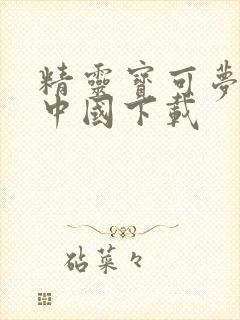 精靈寶可夢
中國下載
砧菜々